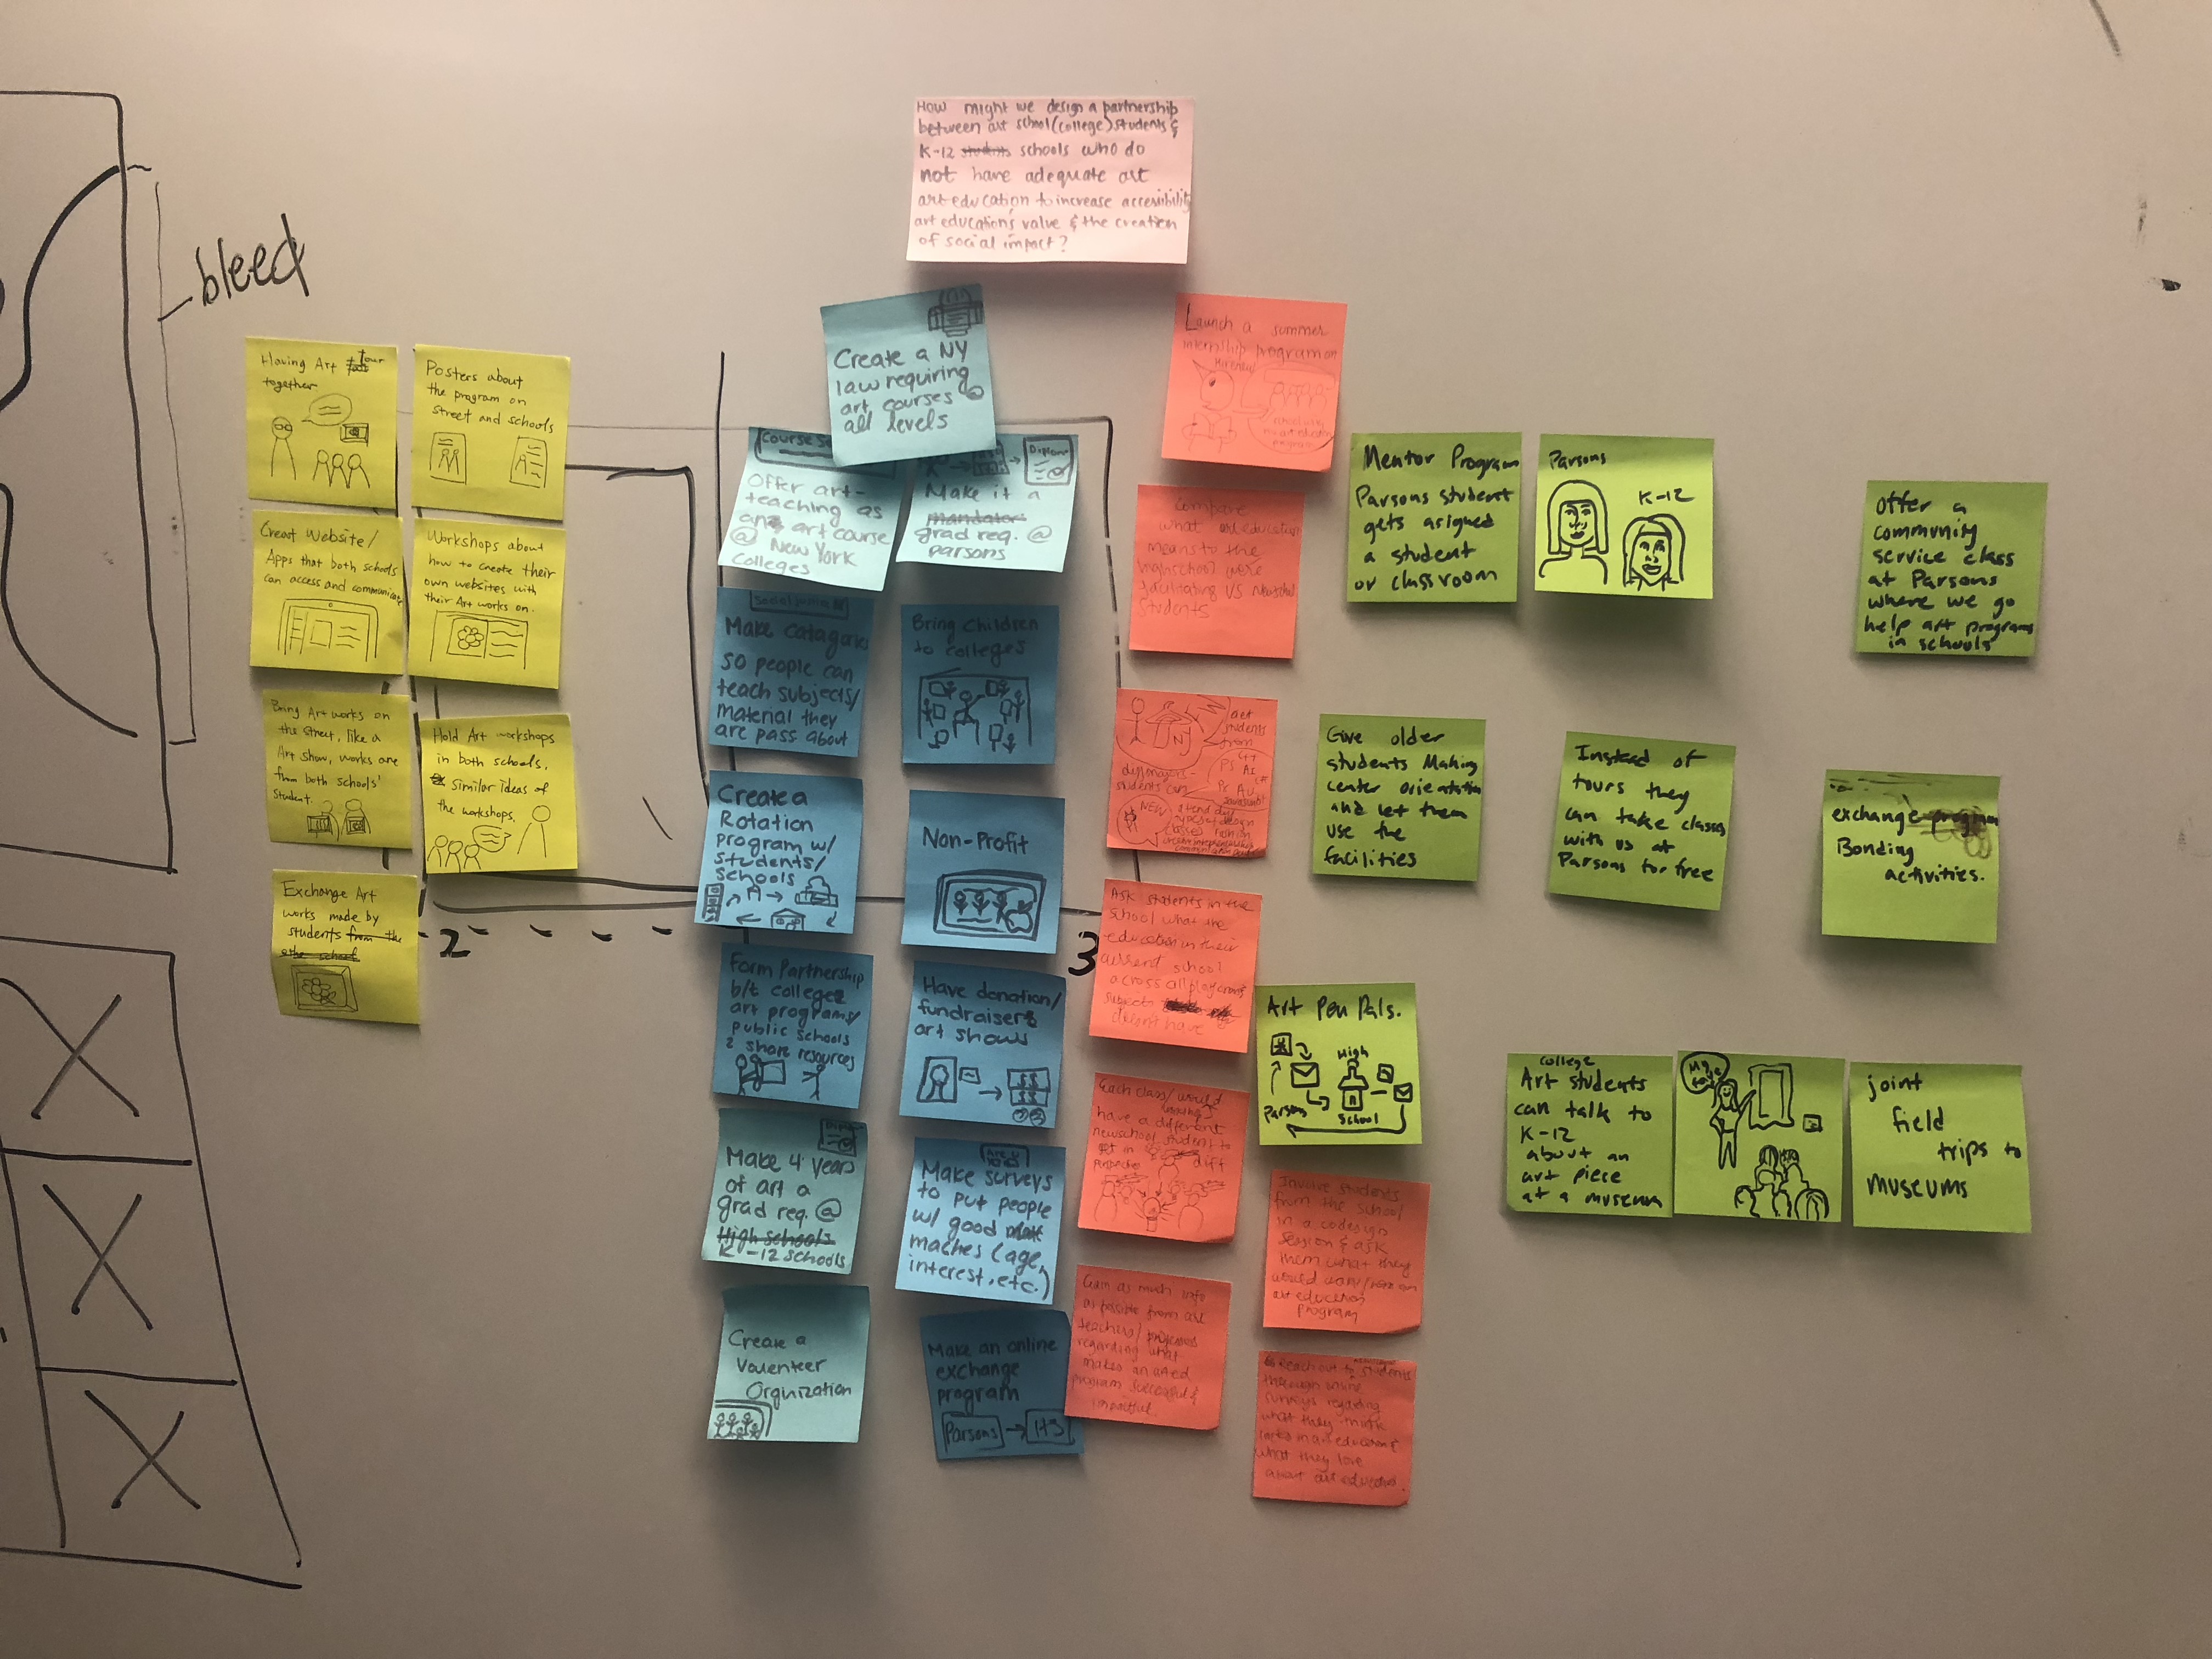 How might we design a partnership
between art school (college) students &
K-12 students schools who do
not have adequate art
art education to increase accessibility
art education's value & the creation
of social impact?
bleed
Having Art tour
together
Posters about
the program on
street and schools
Creat Website/
Apps that both schools
can access and communicate
Workshops about
how to create their
own websites with
their Art works on.
Bring Art works on
the street, like a
Art Show, works are
from both schools'
Student.
Hold Art workshops
in both schools.
Similar ideas of
the workshops.
Exchange Art
works made by
students from the
othe school
2
3
Create a NY
law requiring
art courses @
all levels
Course
Offer art-
teaching as
an art course
@ New York
Colleges
Diploma
Make it a
mandator
grad req. @
parsons
Social justice
Make catagories
so people can
teach subjects/
material they
are pass about
Bring Children
to colleges
Create a
Rotation
program w/
students/
schools
Non-Profit
Form Partnership
b/t colleges
art programs/
public schools
2 share resources
Have donation/
fundraisers
art shows
$$
$$
Make 4 years
of art a
grad req. @
High schools
K-12 schools
Make surveys
to put people
w/ good
maches (age,
interest, etc.)
Create a
Volenteer
Orgnization
Make an online
exchange
program
Parsons → HS
Launch a summer
internship program on
Compare
what art education
means to the
highschool were
facilitating VS Newschool
Students
art
students
from
NJ
students can
PS AI
NEW
attend diff
types of design
classes fashion
Ask students in the
school what the
education in their
current school
across all
subjects
doesn't have
Each class/ would
have a different
newschool student to
diff
Gain as much info
as possible from art
teachers/ professors
regarding what
makes an art ed
program successful &
impactful
Involve students
from the school
in a codesign
session & ask
them what they
would want
art education
program
Reach out to students
through online
surveys regarding
what they think
what they love
about art education
Mentor Program
Parsons student
gets asigned
a student
or classroom
Parsons
K-12
Offer a
community
service class
at Parsons
where we go
help art programs
in schools
Give older
students Making
center orientation
and let them
use the
facilities
Instead of
tours they
can take classes
with us at
Parsons for free
exchange program
Bonding
activities.
Art Pen Pals.
High
Parsons
School
college
Art students
can talk to
K-12
about an
art piece
at a museum
joint
field
trips to
museums